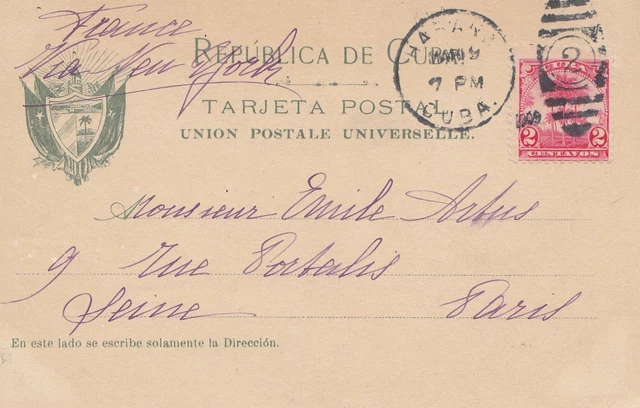 France
Via New York
REPÚBLICA DE CUBA
TARJETA POSTAL
UNION POSTALE UNIVERSELLE.
HABANA
7 PM
CUBA.
2
CUBA
2 2
CENTAVOS
Monsieur Emile Artus
9 Rue Portalis
Seine Paris
En este lado se escribe solamente la Dirección.